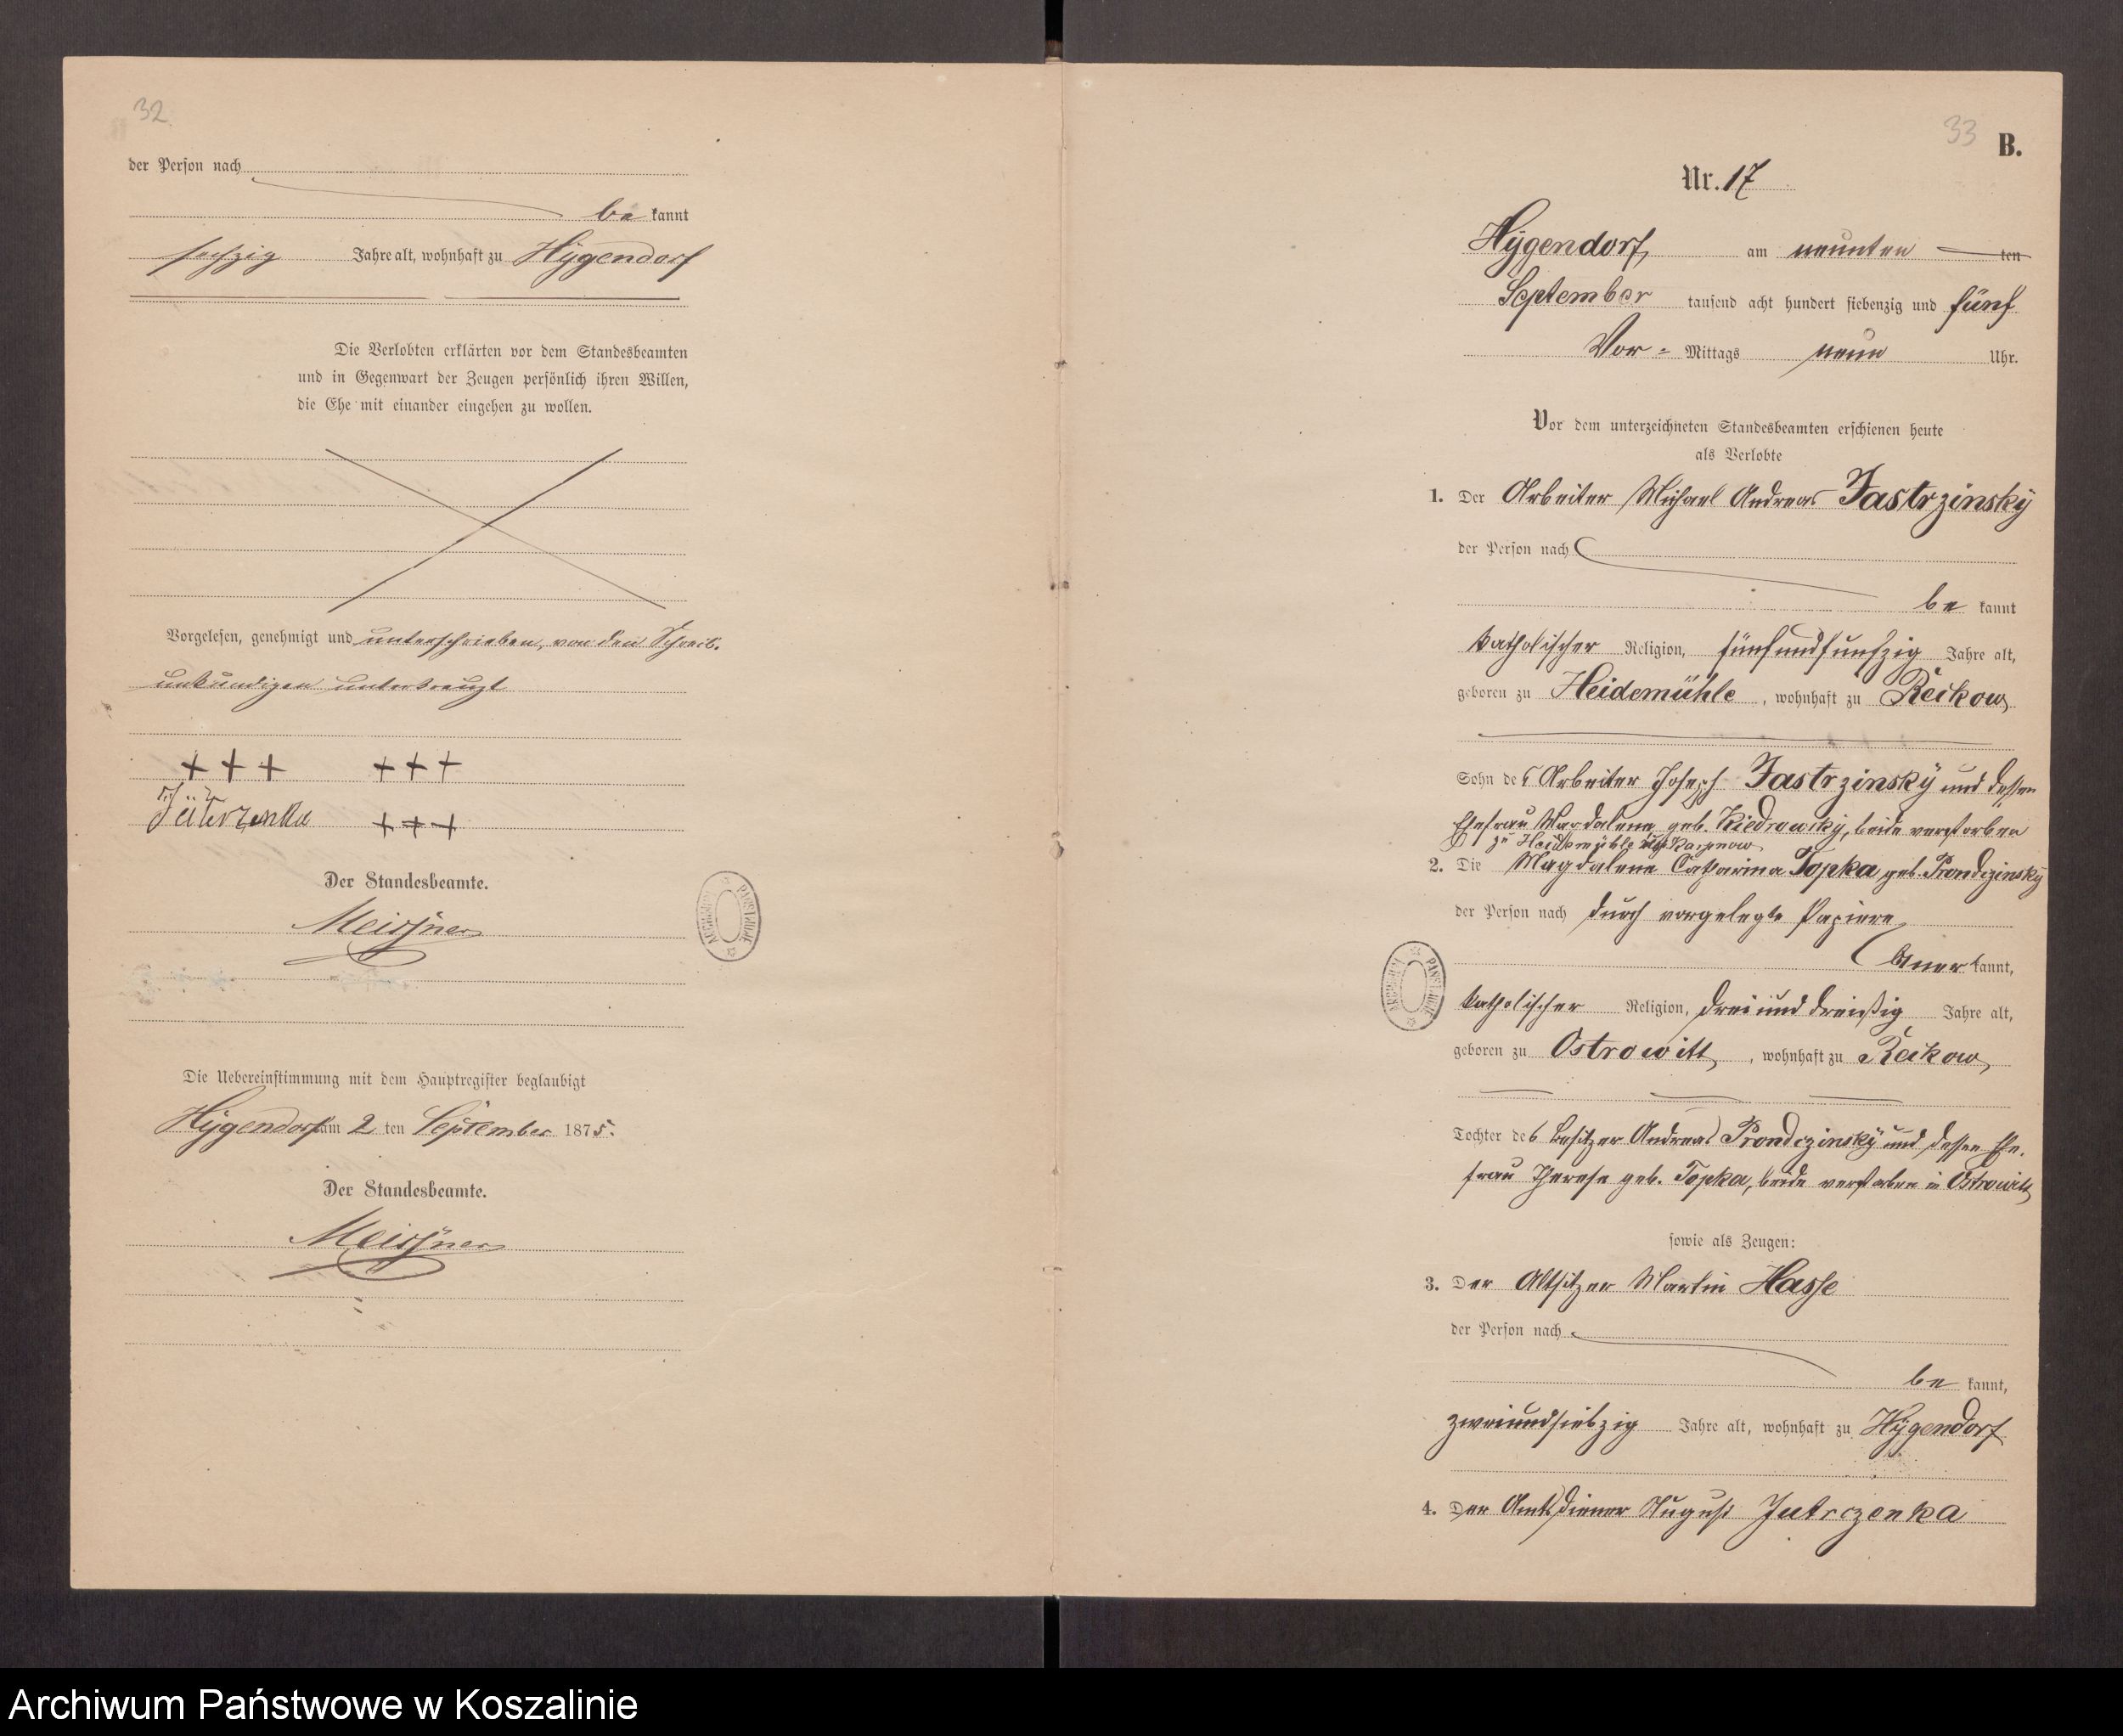 32.
der Person nach
be kannt
sechzig Jahre alt, wohnhaft zu Hÿgendorf
Die Verlobten erklärten vor dem Standesbeamten
und in Gegenwart der Zeugen persönlich ihren Willen,
die Ehe mit einander eingehen zu wollen.
Vorgelesen, genehmigt und unterschrieben, von den Schreib-
unkundigen unterkreuzt
+ + + + + +
Jüterzenka + + +
Der Standesbeamte.
Meissner
ARCHIWUM PAŃSTWOWE
Die Uebereinstimmung mit dem Hauptregister beglaubigt
Hÿgendorf am 2 ten September 1875.
Der Standesbeamte.
Meissner
33
B.
Nr. 17
Hÿgendorf, am neunten ten
September tausend acht hundert siebenzig und fünf
Vor = Mittags neun Uhr.
Vor dem unterzeichneten Standesbeamten erschienen heute
als Verlobte
1. Der Arbeiter Michael Andreas Jastrzinskÿ
der Person nach
be kannt
katholischer Religion, fünfundfunfzig Jahre alt,
geboren zu Heidemühle, wohnhaft zu Reikow,
Sohn des Arbeiter Joseph Jastrzinskÿ und dessen
Ehefrau Magdalena geb. Kiedrowskÿ, beide verstorben
zu Heidemühle Karpnow
2. Die Magdalena Catharina Topka geb. Prondzinskÿ
der Person nach durch vorgelegte Papiere
aner kannt,
katholischer Religion, dreiunddreißig Jahre alt,
geboren zu Ostrowitt, wohnhaft zu Reikow,
Tochter des Besitzer Andreas Prondczinskÿ und dessen Ehe-
frau Therese geb. Topka, beide verstorben in Ostrowitt,
sowie als Zeugen:
3. Der Altsitzer Martin Hasse
der Person nach
be kannt,
zweiundsiebzig Jahre alt, wohnhaft zu Hÿgendorf
4. Der Amtsdiener August Jutrczenka
ARCHIWUM PAŃSTWOWE
Archiwum Państwowe w Koszalinie